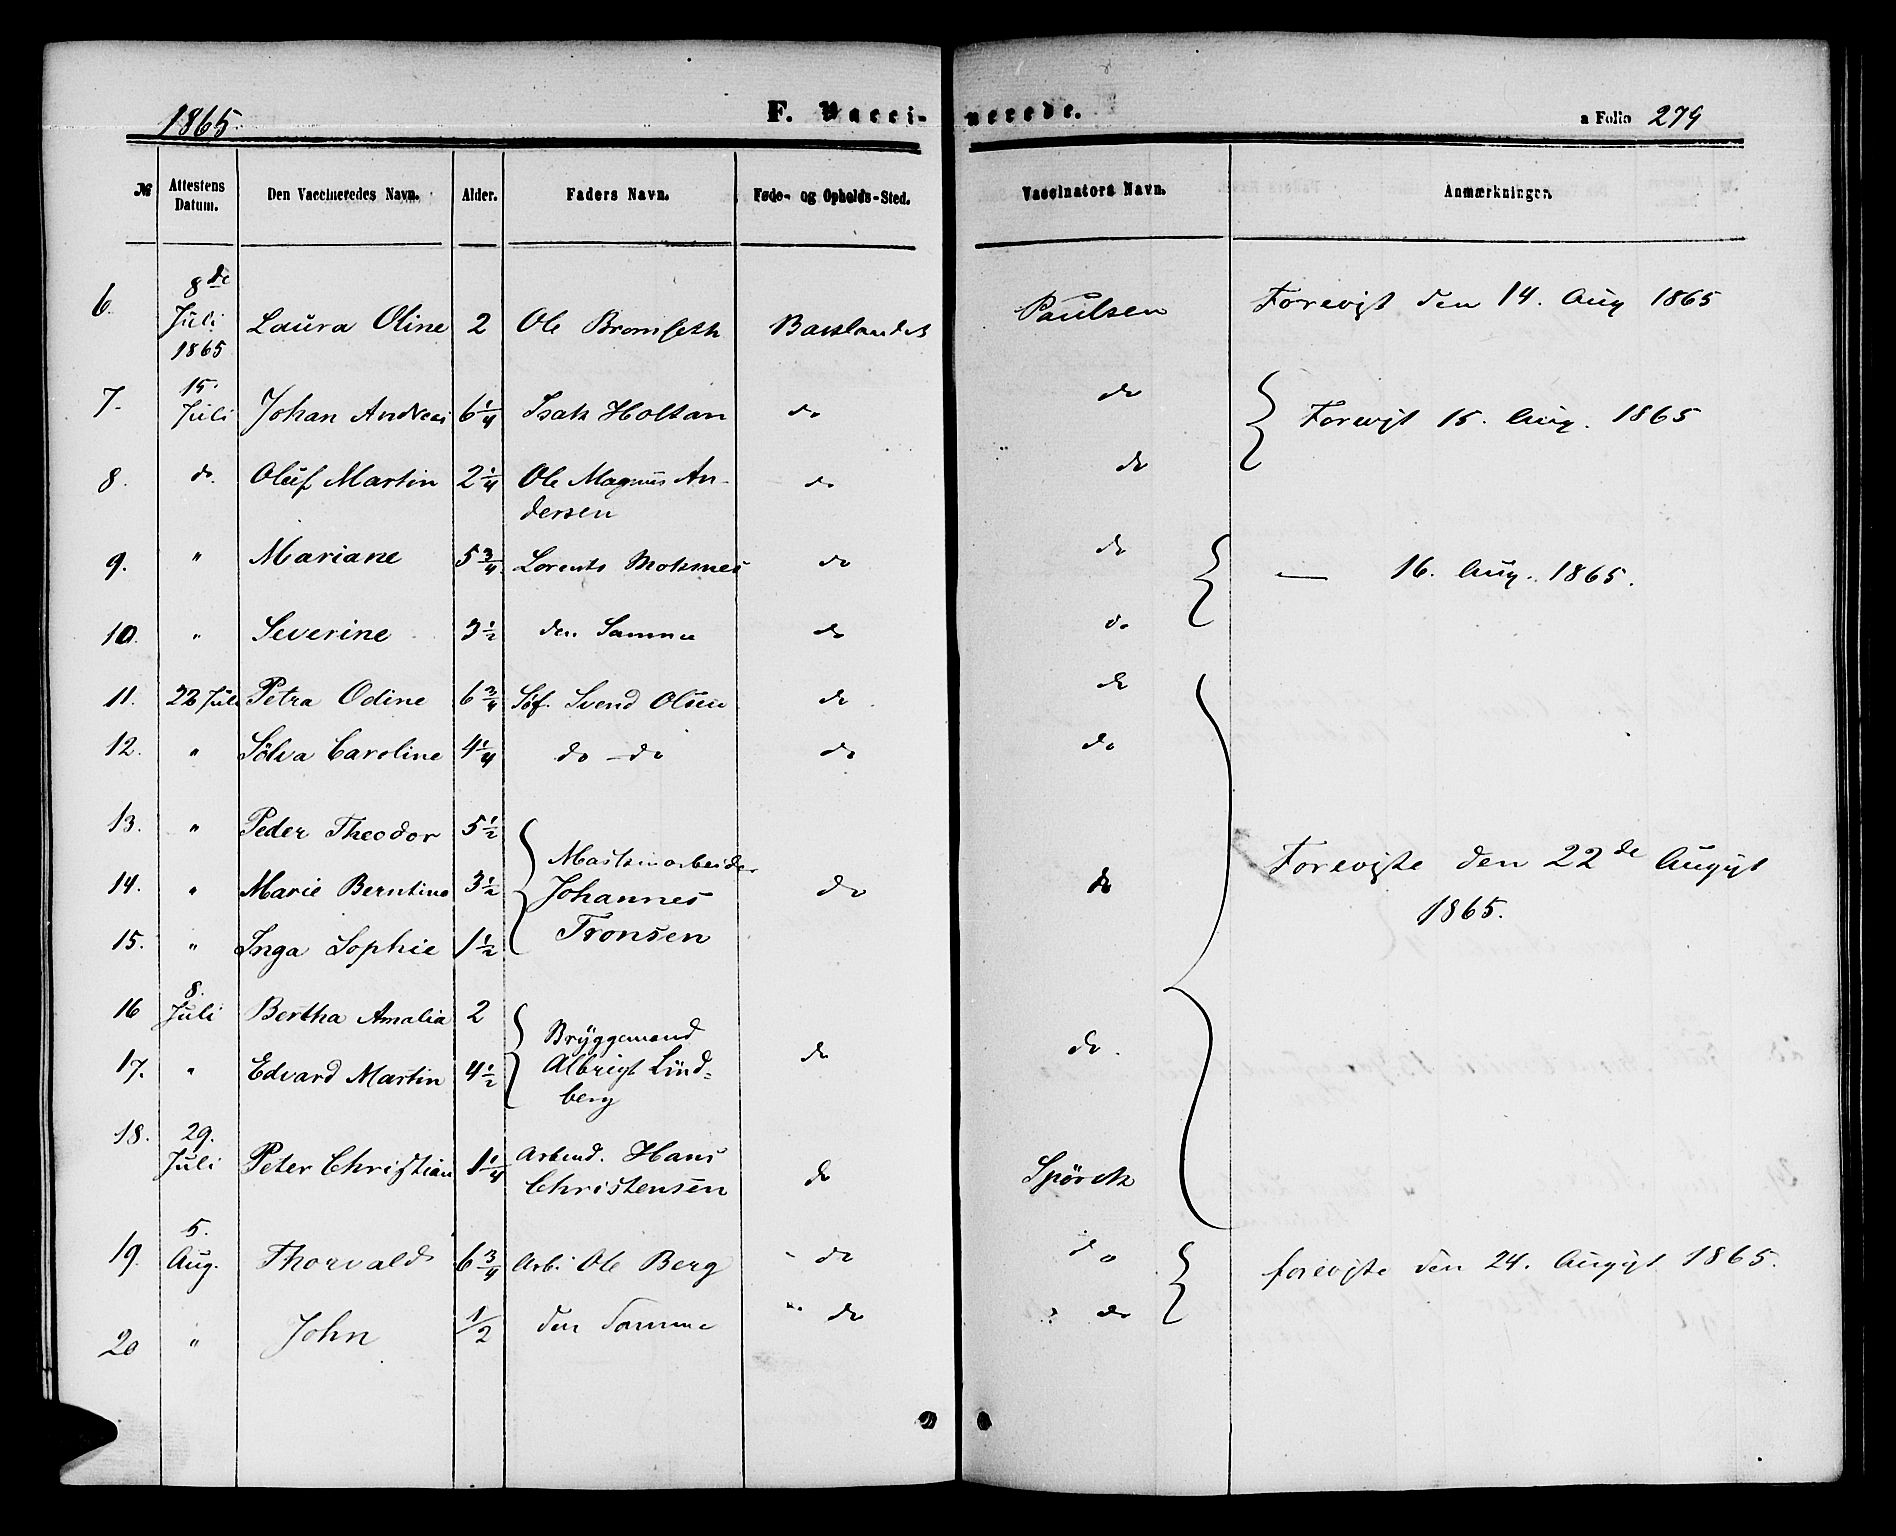 1865.
F. Vaccinerede.
a Folio 279
№ Attestens Datum. Den Vaccineredes Navn. Alder. Faders Navn. Føde- og Opholds-Sted. Vaccinators Navn. Anmærkninger.
6. 8de Juli 1865 Laura Oline 2 Ole Bromseth Baklandet Paulsen Forevist den 14. Aug 1865
7. 15. Juli Johan Andreas 6 1/4 Isak Holtan do do Forevist 15. Aug. 1865
8. do. Oluf Martin 2 1/4 Ole Magnus An-
dersen do do
9. " Mariane 5 3/4 Lorents Moksnes do do — 16. Aug. 1865.
10. " Severine 3 1/2 den Samme do do
11. 22 Juli Petra Odine 6 3/4 Søf. Svend Olsen do do
12. " Sølva Caroline 4 1/4 do — do do do
13. " Peder Theodor 5 1/2
Maskinarbeider
14. " Marie Berntine 3 1/2 Johannes do do Foreviste den 22de August
1865.
15. " Inga Sophie 1 1/2 Tronsen
16 8. Juli Bertha Amalia 2 Bryggemand
17. " Edvard Martin 4 1/2 Albrigt Lind=
berg do do.
18. 29. Juli Peter Christian 1 1/4 Arbeid. Hans
Christensen do Spörck
19. 5. Aug. Thorvald 6 3/4 Arb. Ole Berg do do foreviste den 24. August 1865.
20 " John 1/2 den Samme " do do